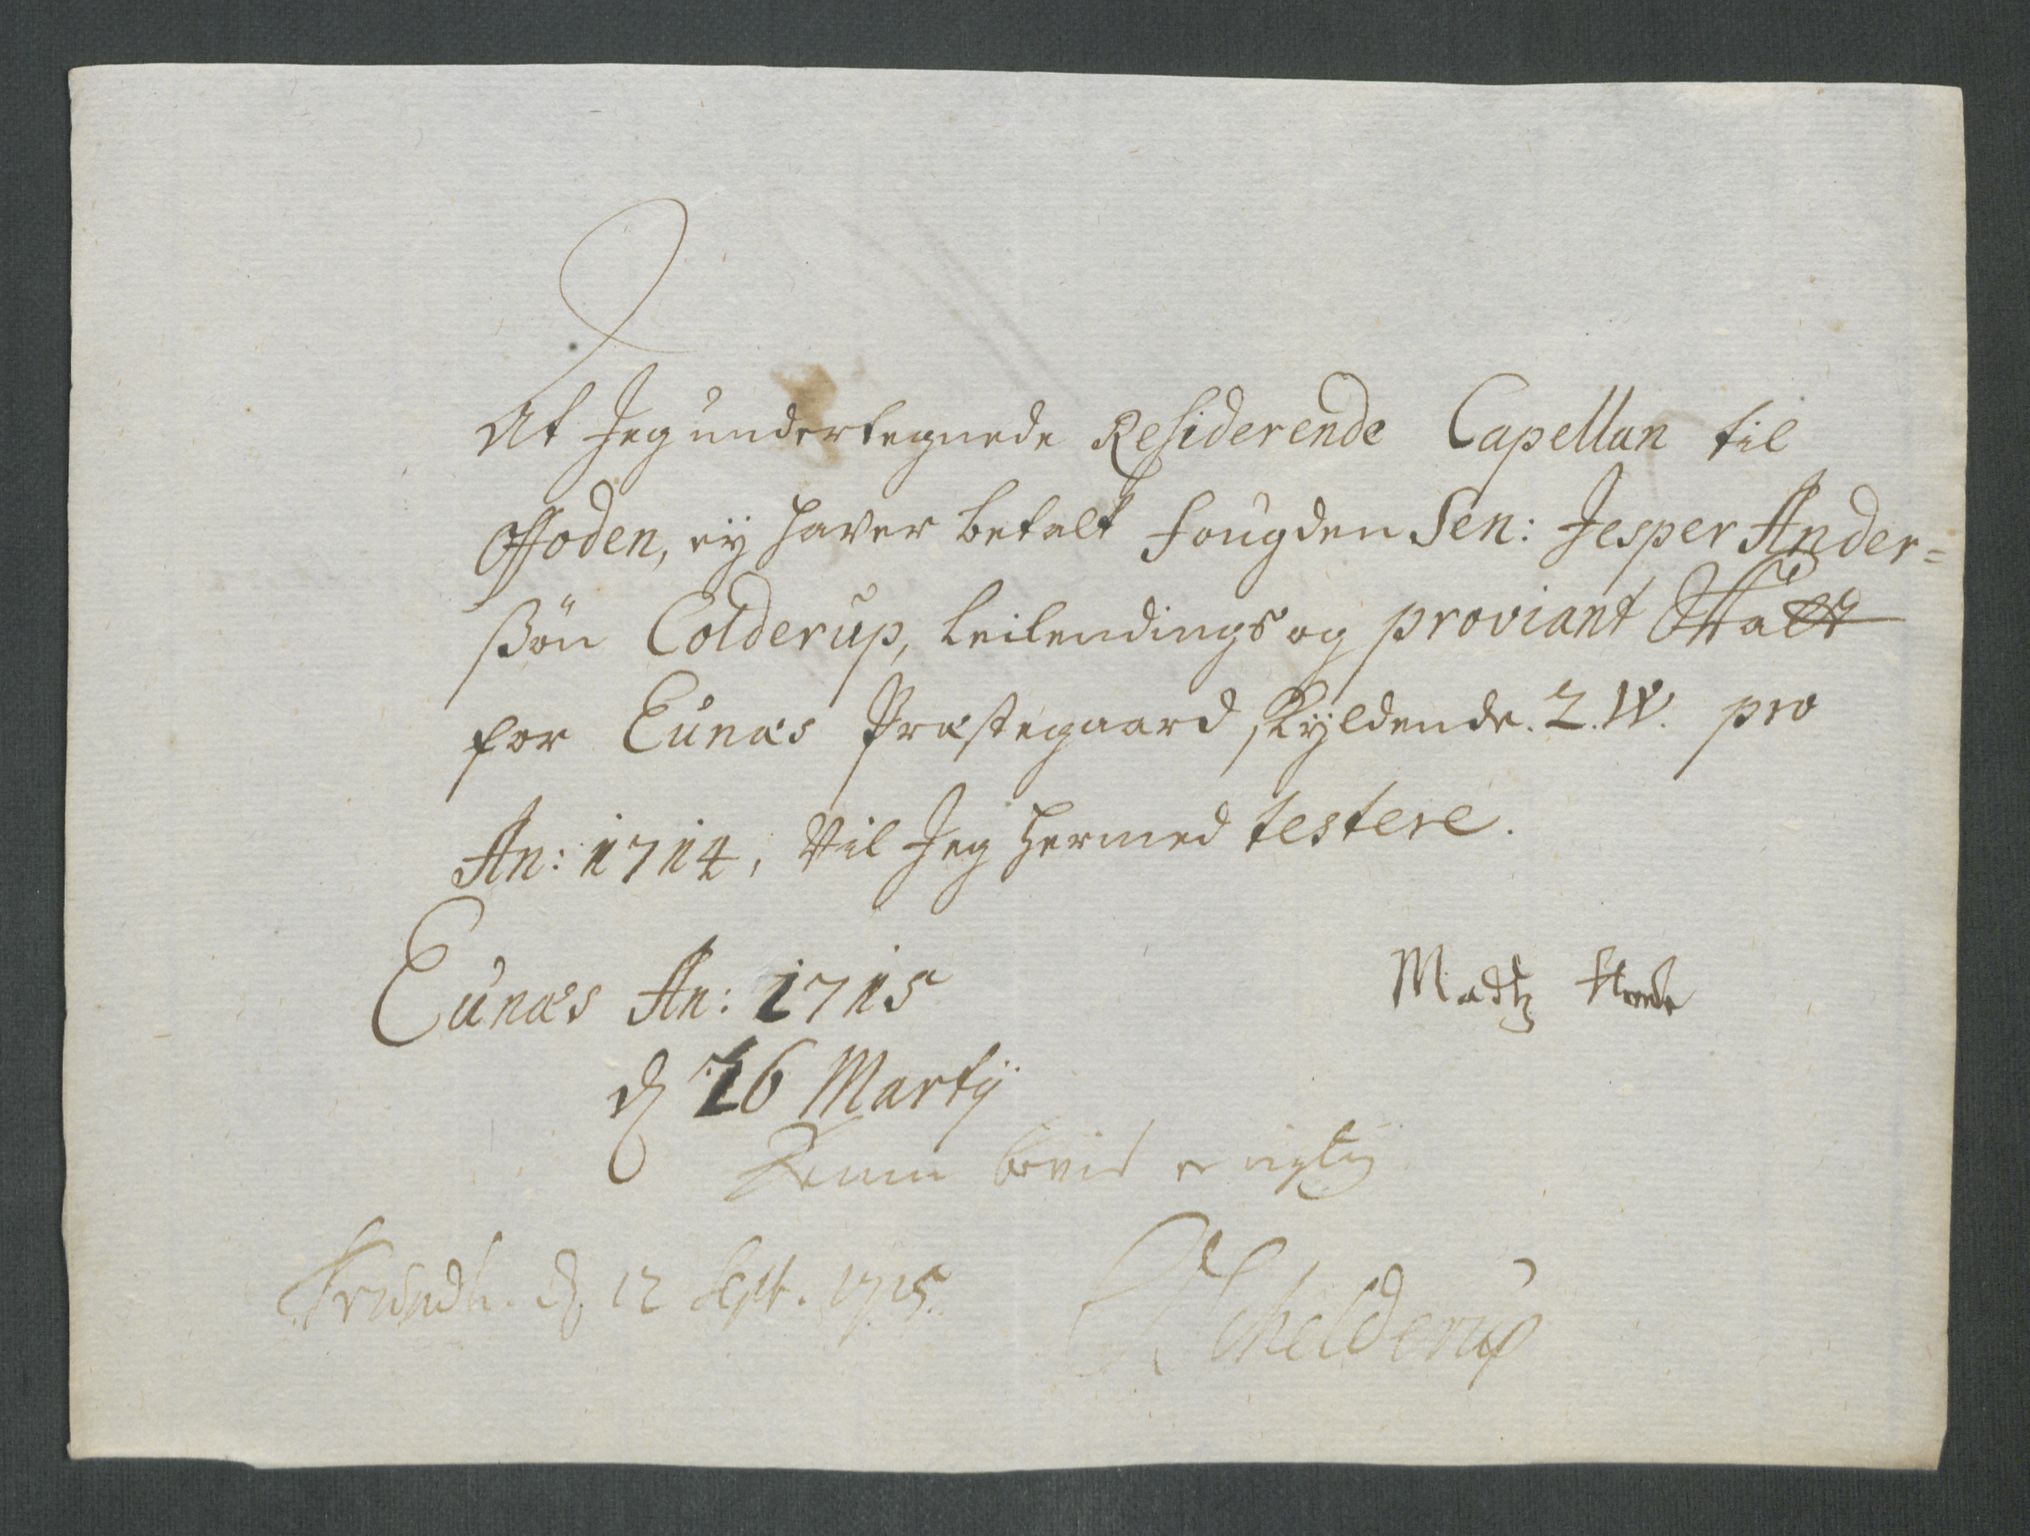 At Jeg undertegnede Residerende Capellan til
Offoden, eÿ haver betalt fougden Sen: Jesper Ander=
ßøn Colderup, Leilendings og proviant Skatt
for Eunæs Præstegaard skÿldende. 2. W. pro
An: 1714, Vil Jeg hermed testere.
Eunæs An: 1715
Madtz
d 16 Martÿ
Denne bevis er rigtig
Trundh. d. 12 Sept. 1715.
Schelderup